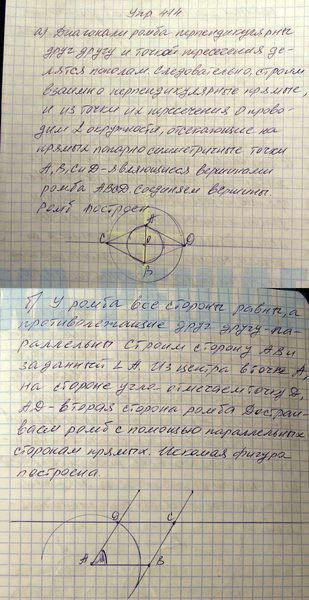 Упр 414
а) Диагонали ромба перпендикулярны
друг другу и точкой пересечения де-
лятся пополам. Следовательно, строим
взаимно перпендикулярные прямые,
и из точки их пересечения О прово-
дим 2 окружности, отсекающие на
прямых попарно симметричные точки
А, В, С и D - являющиеся вершинами
ромба ABCD. Соединяем вершины.
Ромб построен
A
C
O
D
B
б) У ромба все стороны равны, а
противолежащие друг другу - па-
раллельны. Строим сторону АВ и
заданный ∠ А. Из центра в точке А,
на стороне угла отмечаем точку D,
A.D - вторая сторона ромба. Достраи-
ваем ромб с помощью параллельных
сторонам прямых. Искомая фигура
построена.
D
C
A
B